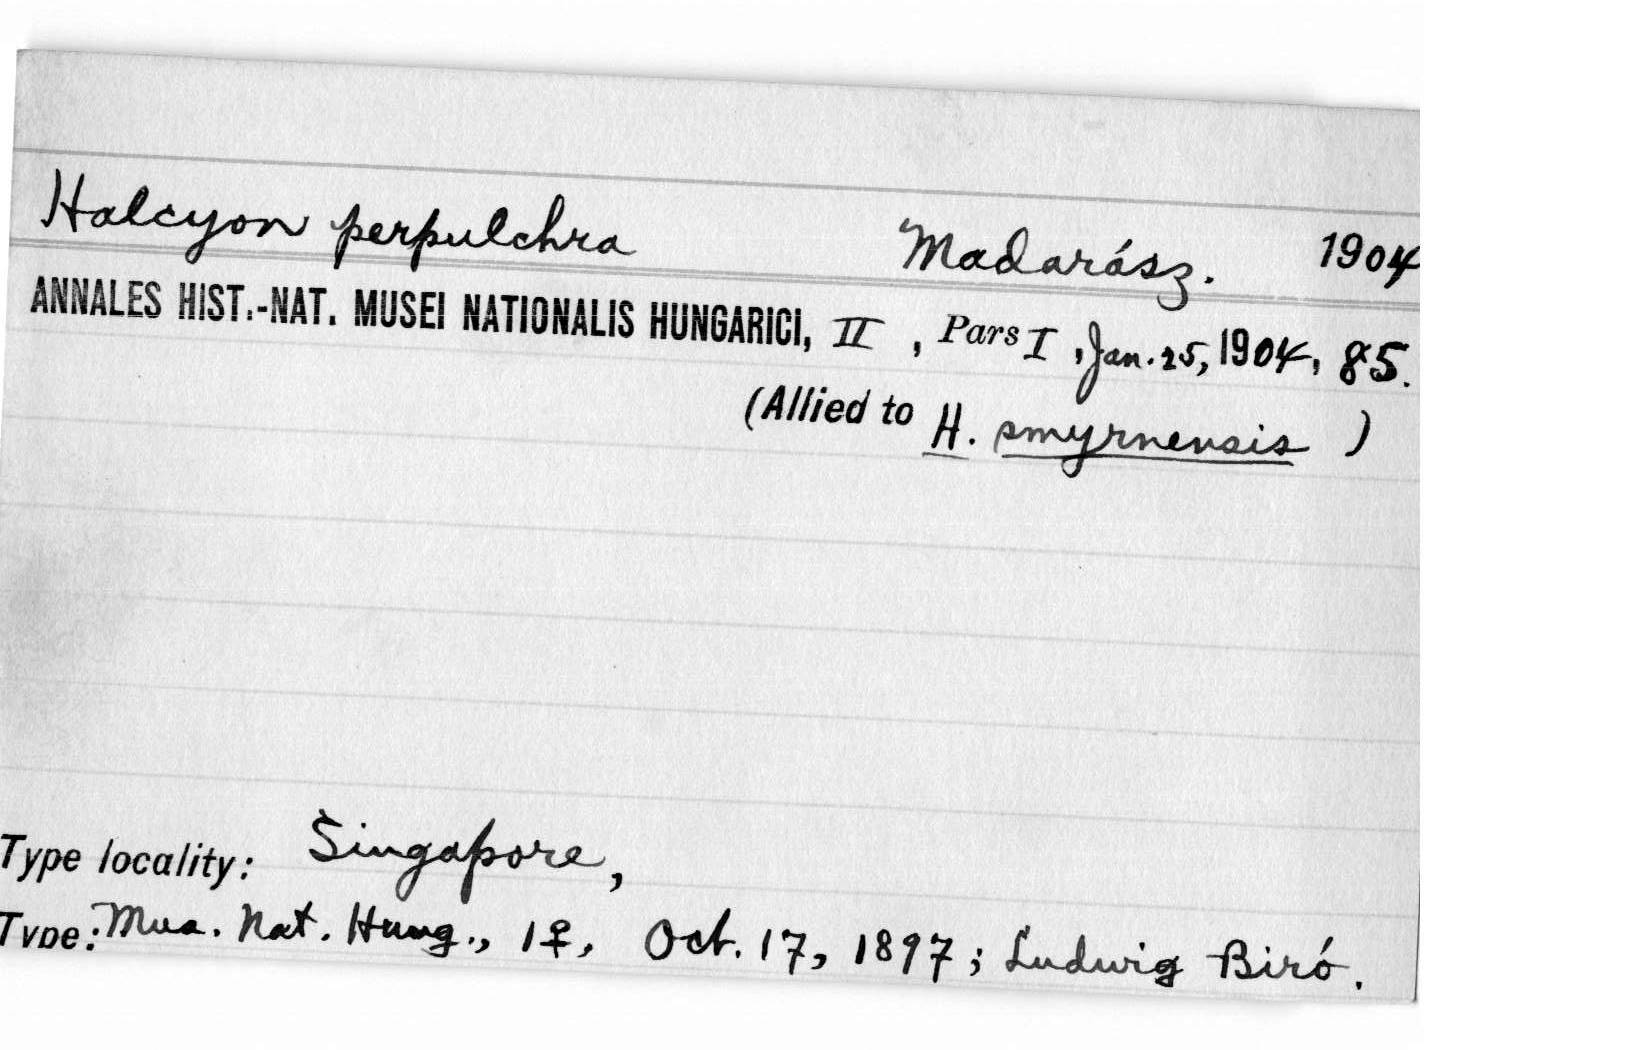 Halcyon perpulchra Madarász. 1904
ANNALES HIST.-NAT. MUSEI NATIONALIS HUNGARICI, II, Pars I, Jan. 25, 1904, 85.
(Allied to H. smyrnensis)
Type locality: Singapore,
Type: Mus. Nat. Hung., 1♀, Oct. 17, 1897; Ludwig Biró.